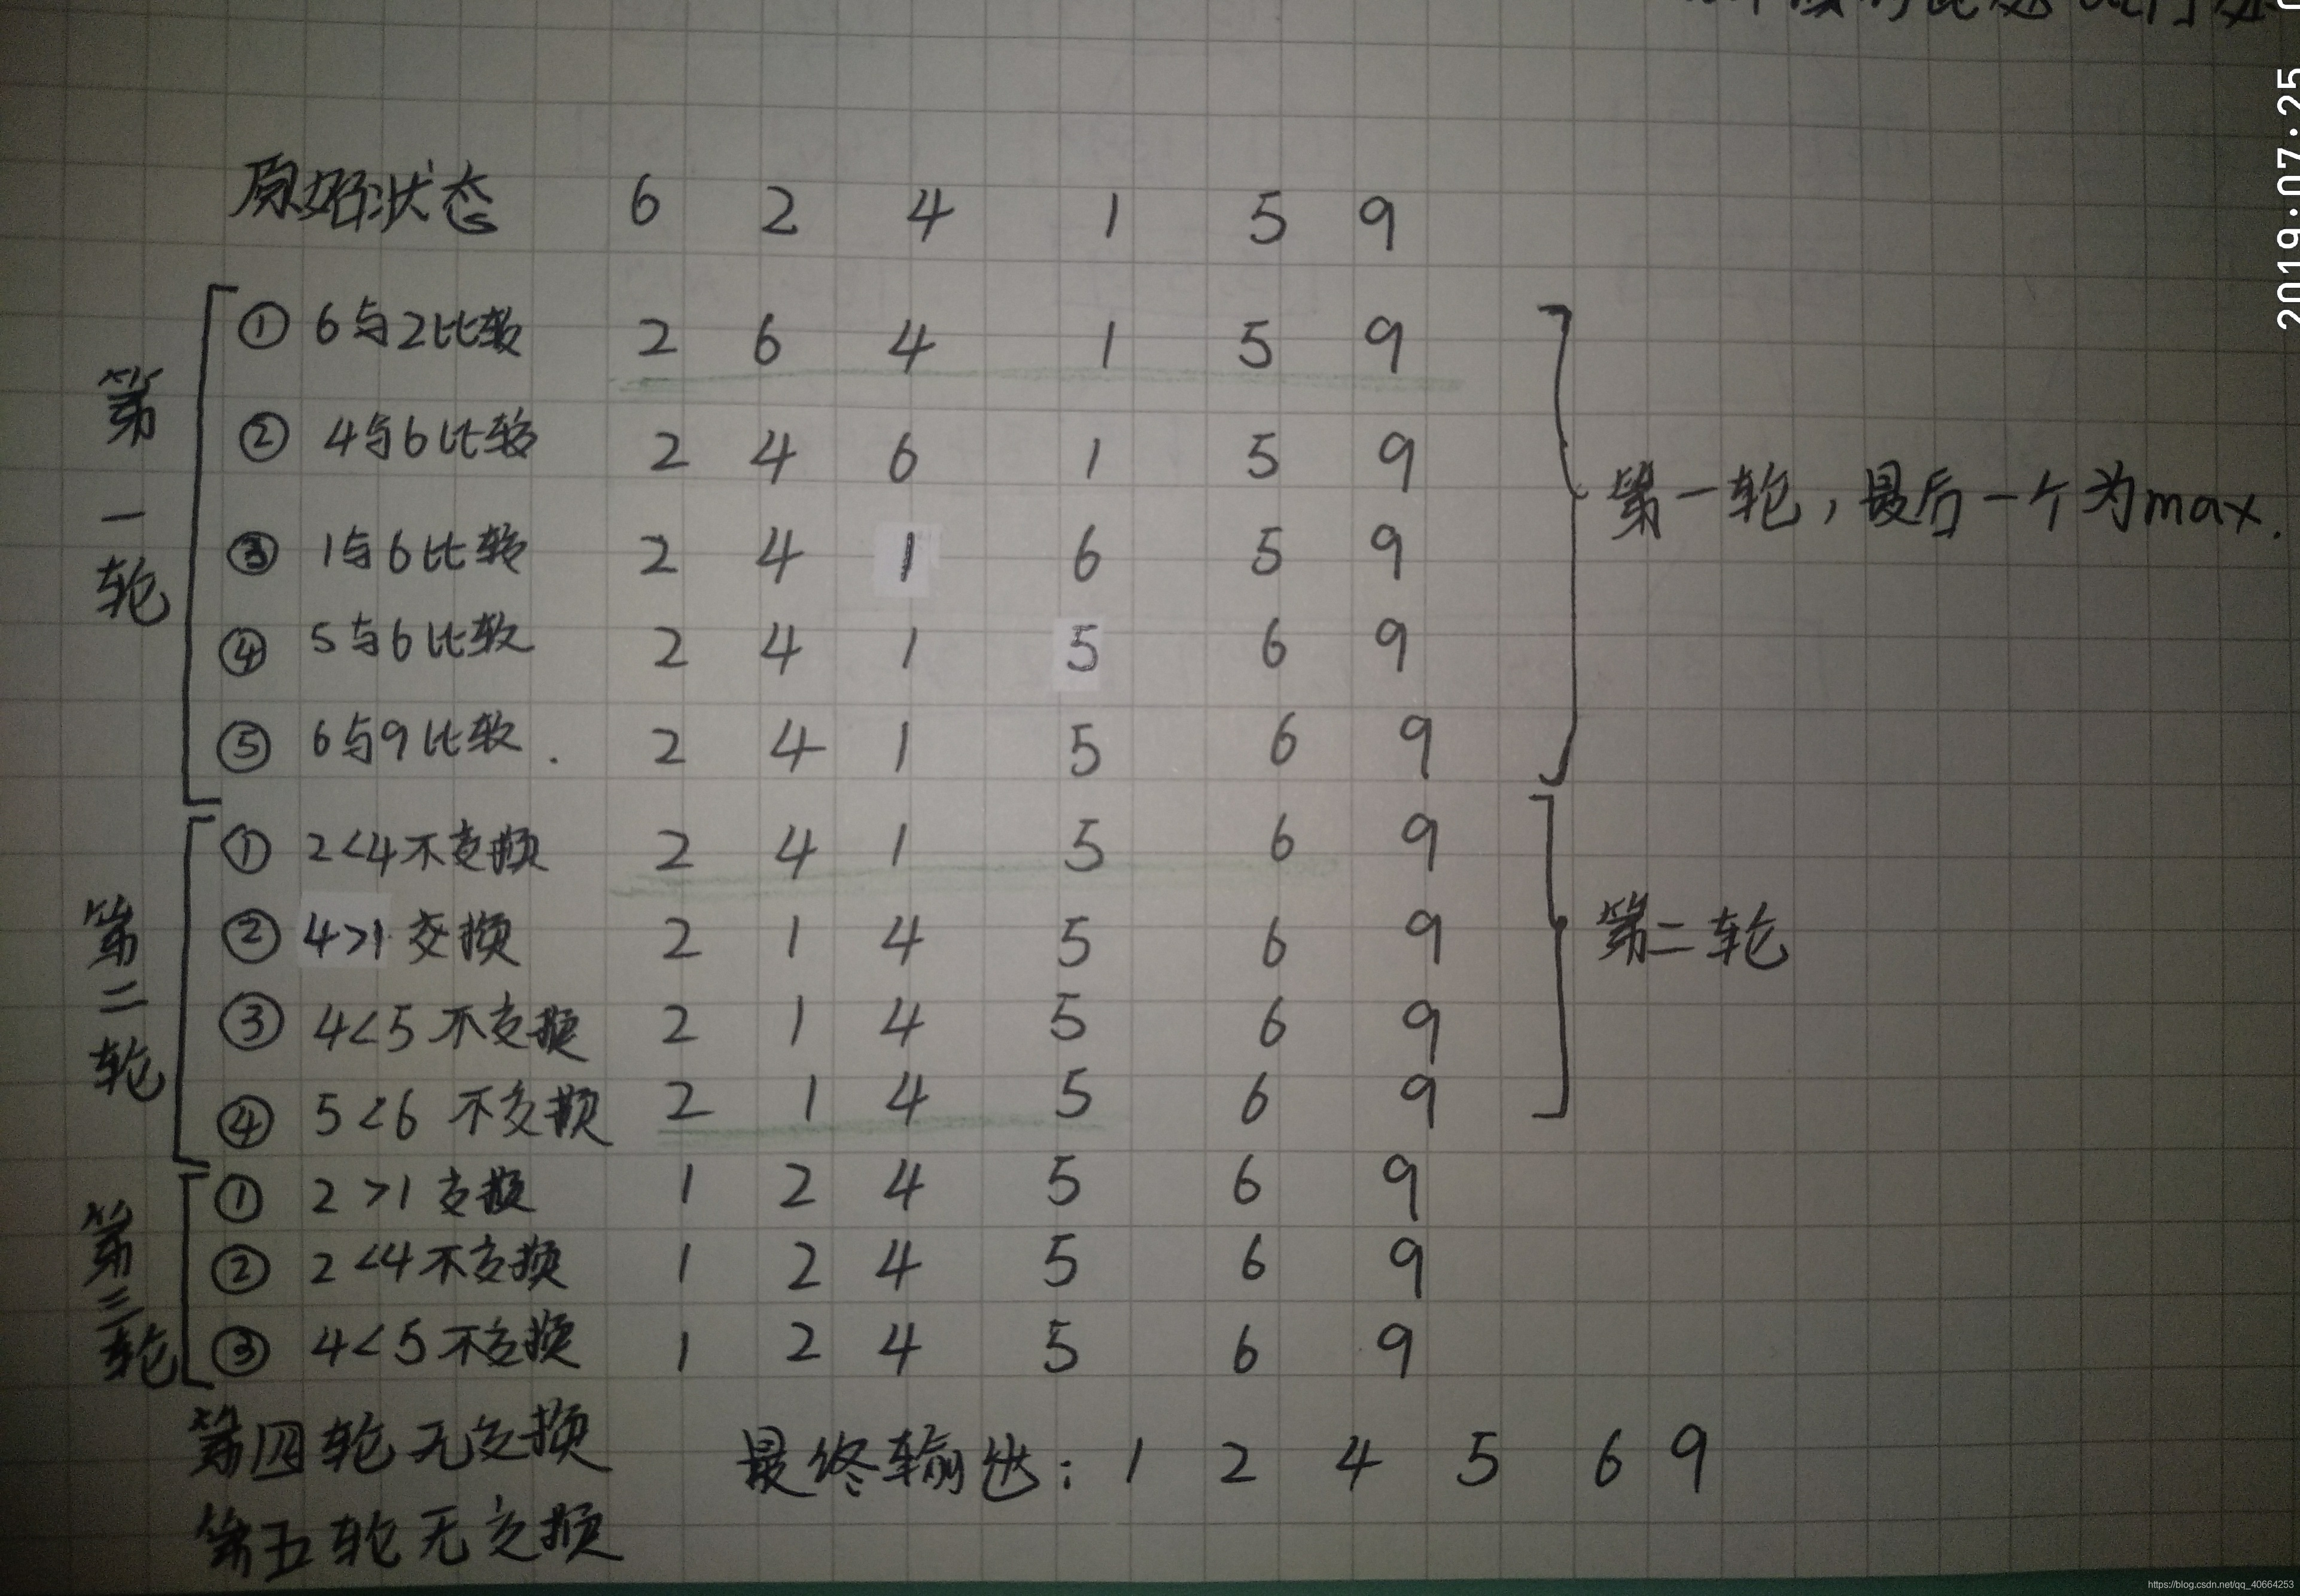 2019.07.25
原始状态 6 2 4 1 5 9
第一轮
① 6与2比较 2 6 4 1 5 9
② 4与6比较 2 4 6 1 5 9
③ 1与6比较 2 4 1 6 5 9
④ 5与6比较 2 4 1 5 6 9
⑤ 6与9比较. 2 4 1 5 6 9
第一轮，最后一个为max.
第二轮
① 2<4不交换 2 4 1 5 6 9
② 4>1 交换 2 1 4 5 6 9
③ 4<5 不交换 2 1 4 5 6 9
④ 5<6 不交换 2 1 4 5 6 9
第二轮
第三轮
① 2>1 交换 1 2 4 5 6 9
② 2<4不交换 1 2 4 5 6 9
③ 4<5不交换 1 2 4 5 6 9
第四轮无交换
最终输出: 1 2 4 5 6 9
第五轮无交换
https://blog.csdn.net/qq_40664253